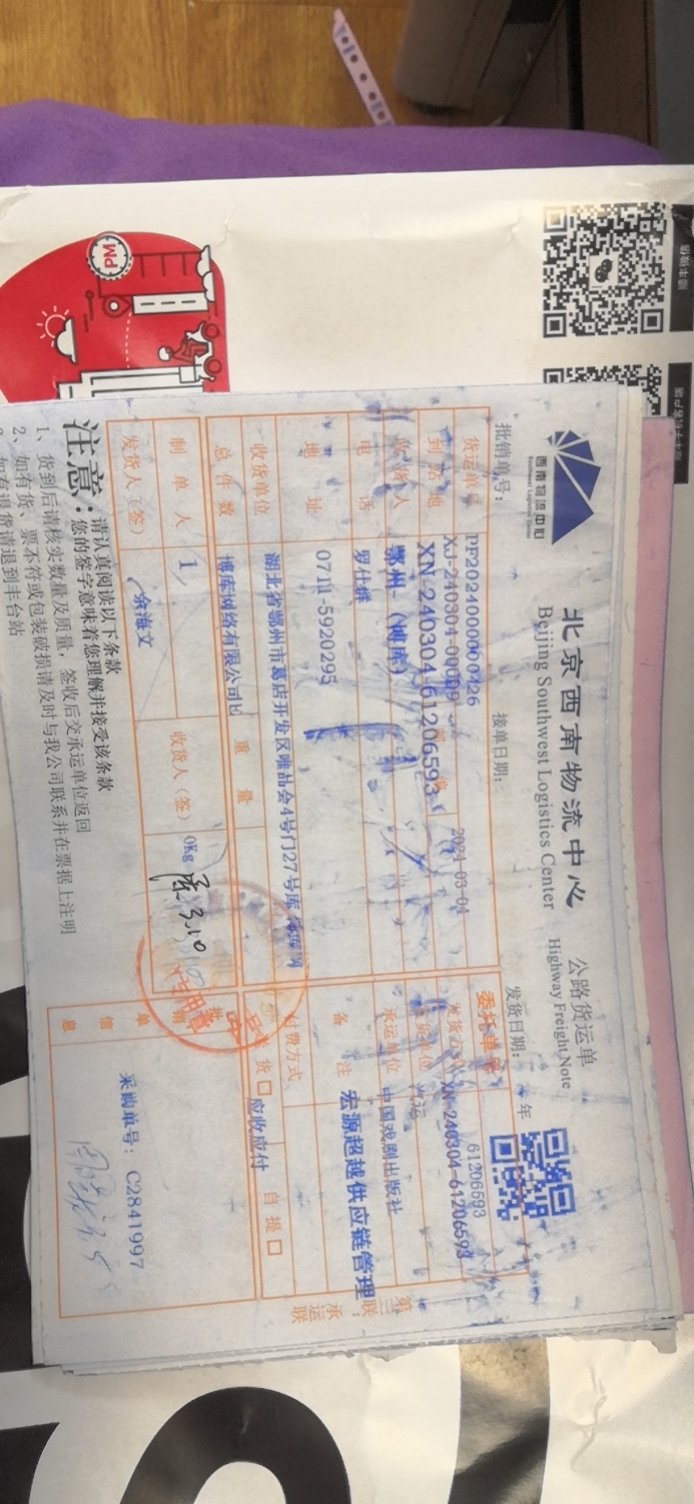 西南物流中心
Southwest Logistics Center
北京西南物流中心
Beijing Southwest Logistics Center
公路货运单
Highway Freight Note
批销单号：
接单日期：
发货日期：
年
货运单号
PP2024000000426
XJ-240304-00009
2024-03-04
委托单号
61206593
到站地
XN-240304-61206593
XN-240304-61206593
收货人
鄂州-（博库）
汽运
电话
罗仕群
承运单位
中国戏剧出版社
地址
0711-5920295
备注
宏源超越供应链管理
收货单位
湖北省鄂州市葛店开发区唯品会4号门27号库
付费方式
总件数
博库网络有限公司
重量
货
应收应付
自提
制单人
1
0Kg
发货人（签）
余海文
收货人（签）
3.10
单信息
采购单号：C2841997
第三联：承运联
注意：
请认真阅读以下条款
您的签字意味着您理解并接受该条款
1、货到后请核实数量及质量，签收后交承运单位返回
2、如有货、票不符或包装破损请及时与我公司联系并在票据上注明
如有退货请退到丰台站
PM